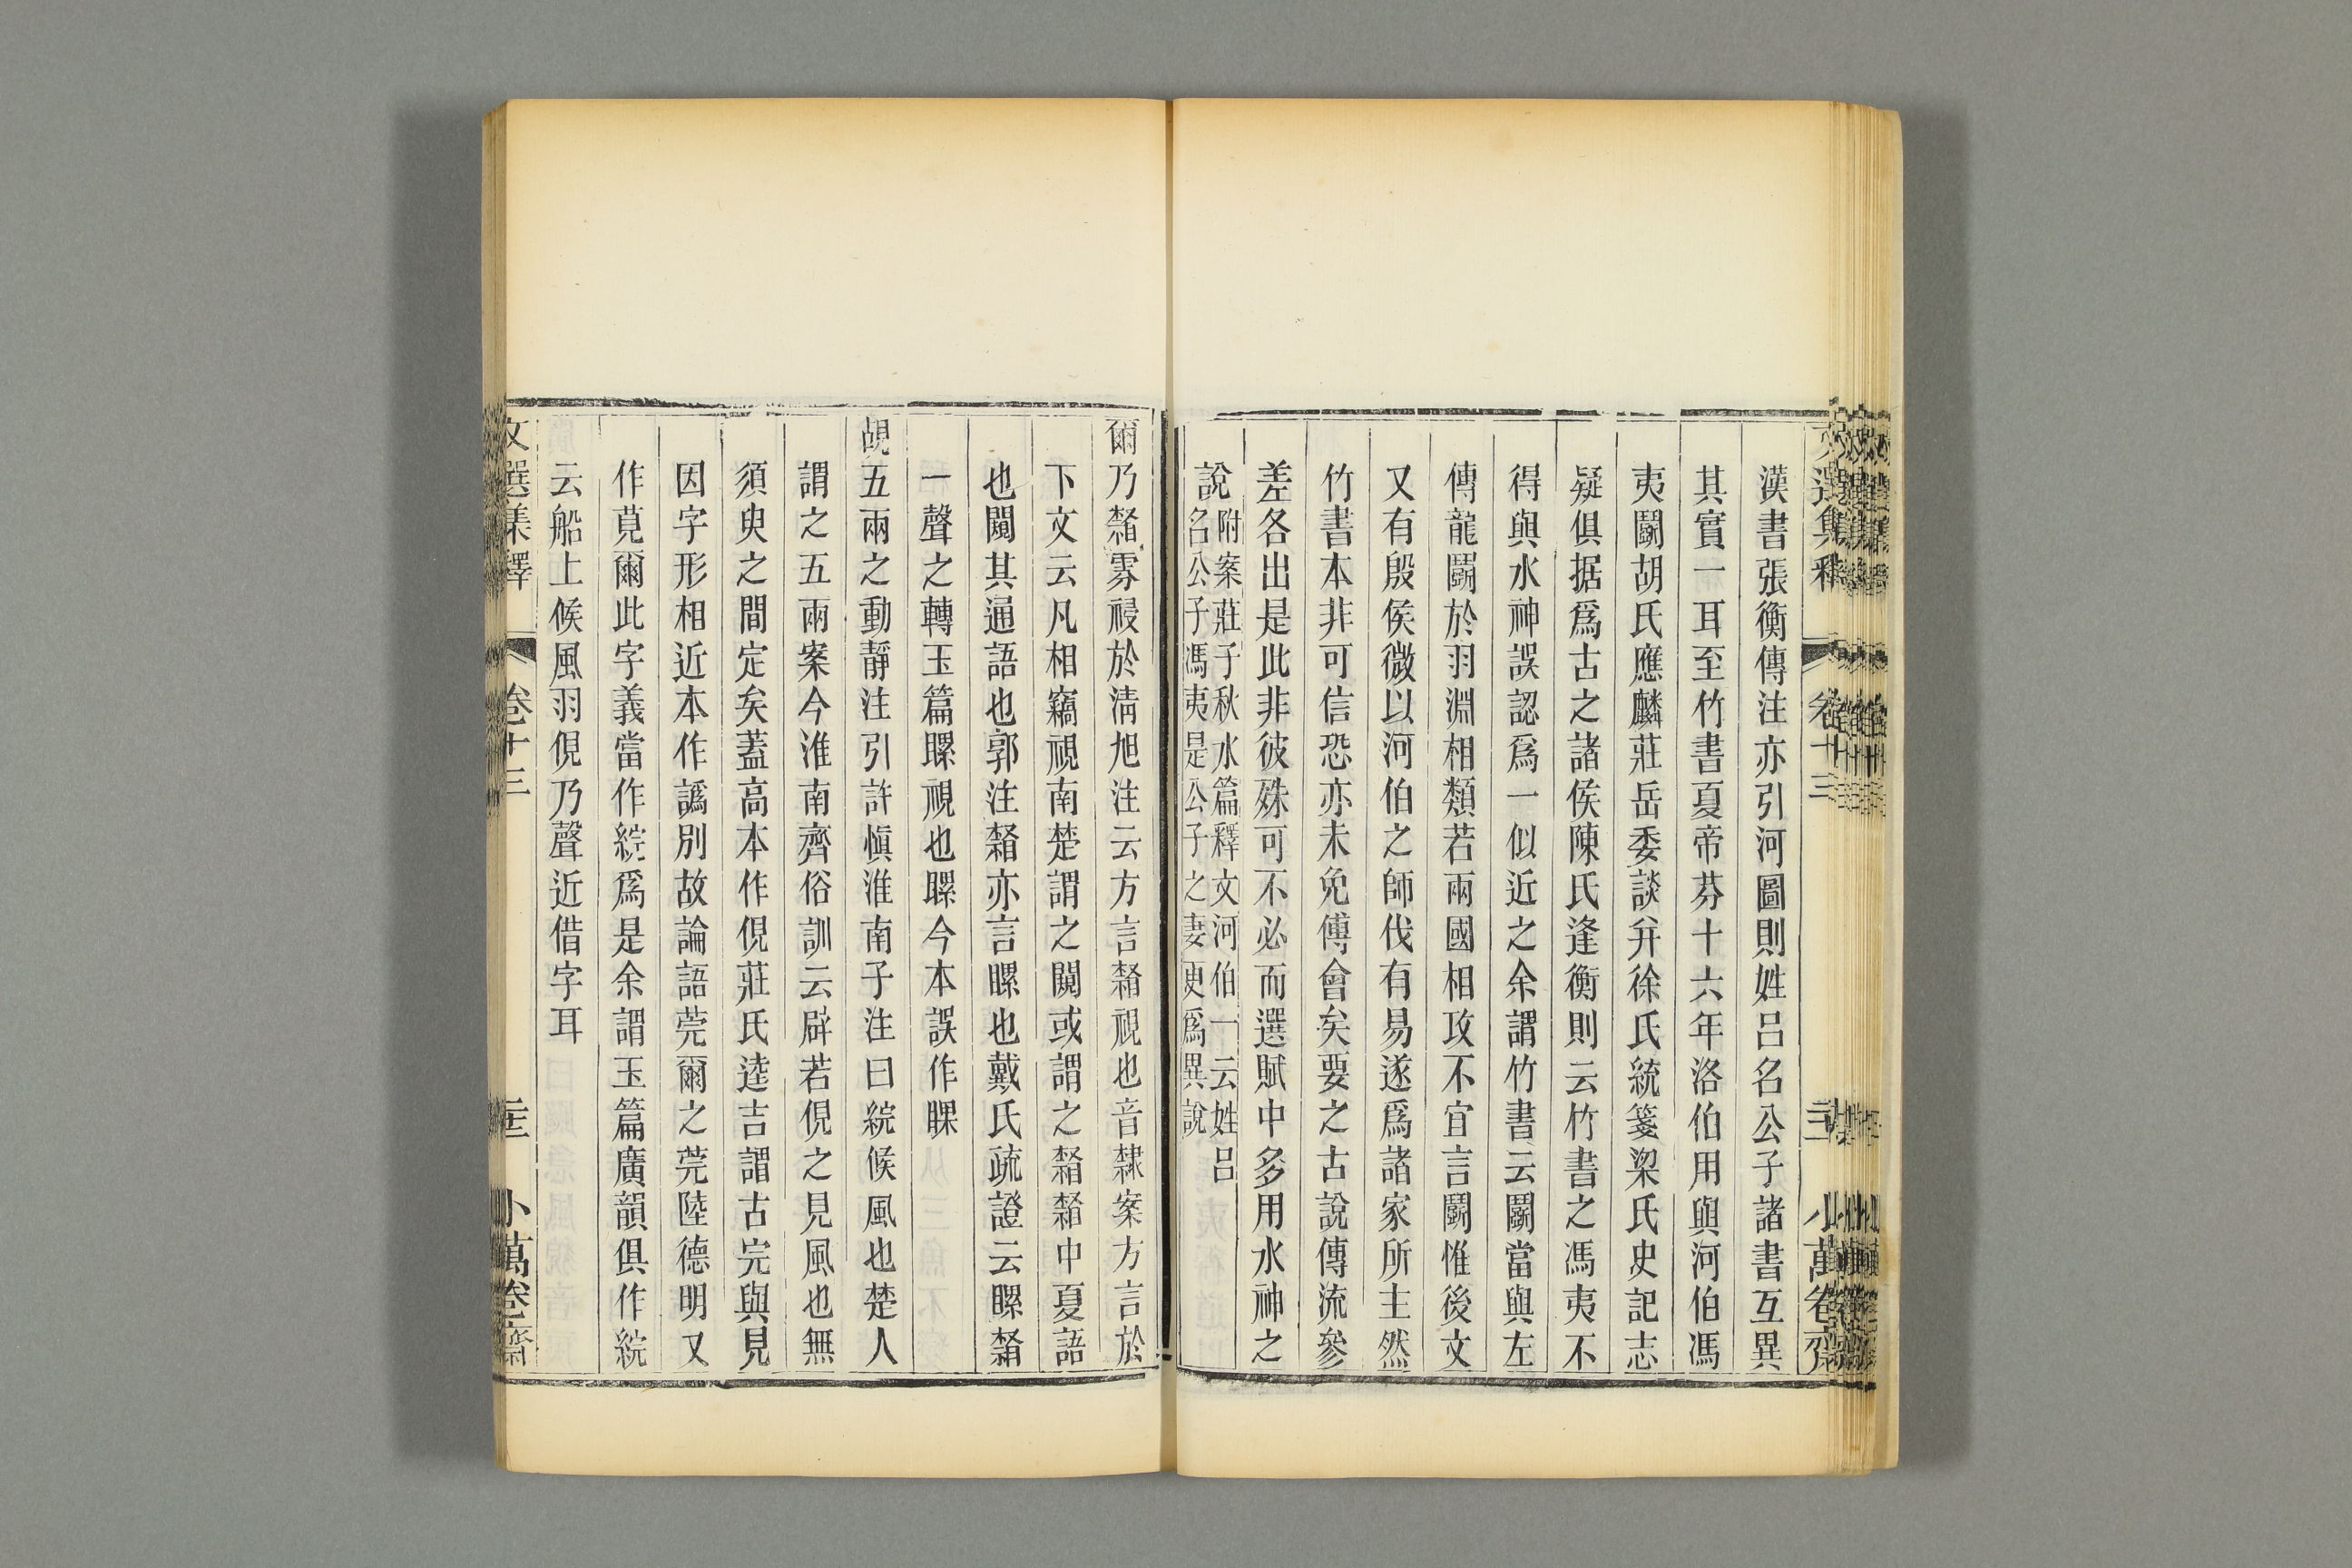 漢書張衡傳注亦引河圖則姓呂名公子諸書互異
其實一耳至竹書夏帝芬十六年洛伯用與河伯馮
夷鬭胡氏應麟莊岳委談幷徐氏統箋梁氏史記志
疑俱据爲古之諸侯陳氏逢衡則云竹書之馮夷不
得與水神誤認爲一似近之余謂竹書云鬭當與左
傳龍鬭於羽淵相類若兩國相攻不宜言鬭惟後文
又有殷侯微以河伯之師伐有易遂爲諸家所主然
竹書本非可信恐亦未免傅會矣要之古說傳流參
差各出是此非彼殊可不必而選賦中多用水神之
說附案莊子秋水篇釋文河伯一云姓呂
名公子馮夷是公子之妻更爲異說
爾乃䨓雰祲於淸旭注云方言䨓視也音隸案方言於
下文云凡相竊視南楚謂之闚或謂之䨓䨓中夏語
也闚其通語也郭注䨓亦言䁖也戴氏疏證云䁖䨓
一聲之轉玉篇䁖視也䁖今本誤作䀎
覘五兩之動靜注引許愼淮南子注曰綄候風也楚人
謂之五兩案今淮南齊俗訓云辟若俔之見風也無
須臾之間定矣蓋高本作俔莊氏逵吉謂古完與見
因字形相近本作譌別故論語莞爾之莞陸德明又
作莧爾此字義當作綄爲是余謂玉篇廣韻俱作綄
云船上候風羽俔乃聲近借字耳
文選集釋
卷十三
小萬卷齋